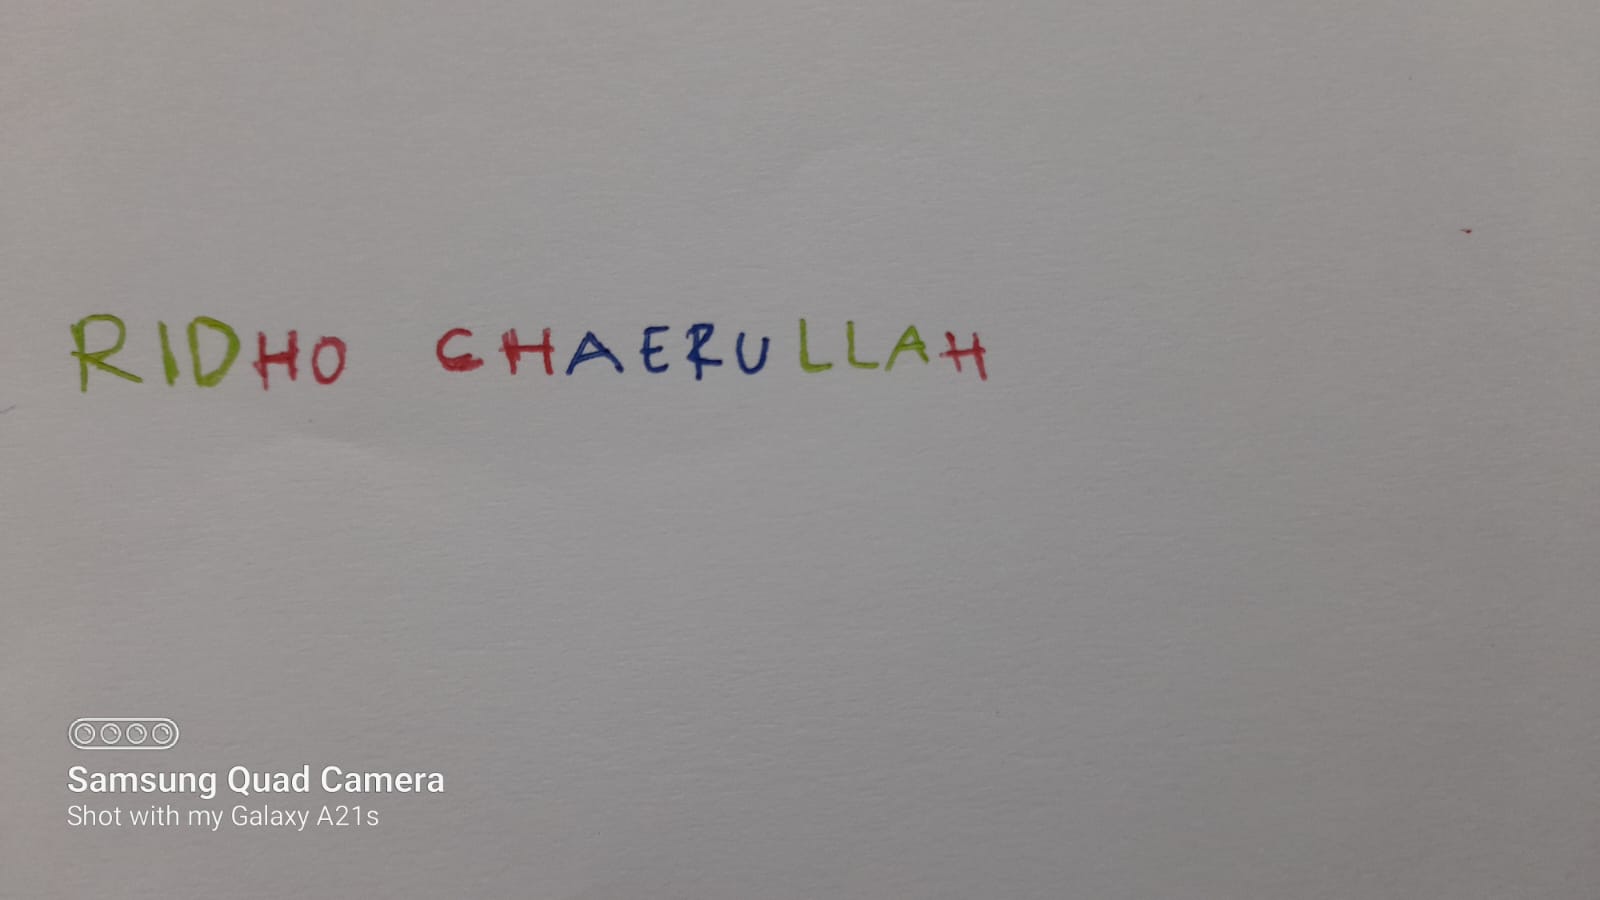 RIDHO CHAERULLAH
Samsung Quad Camera
Shot with my Galaxy A21s